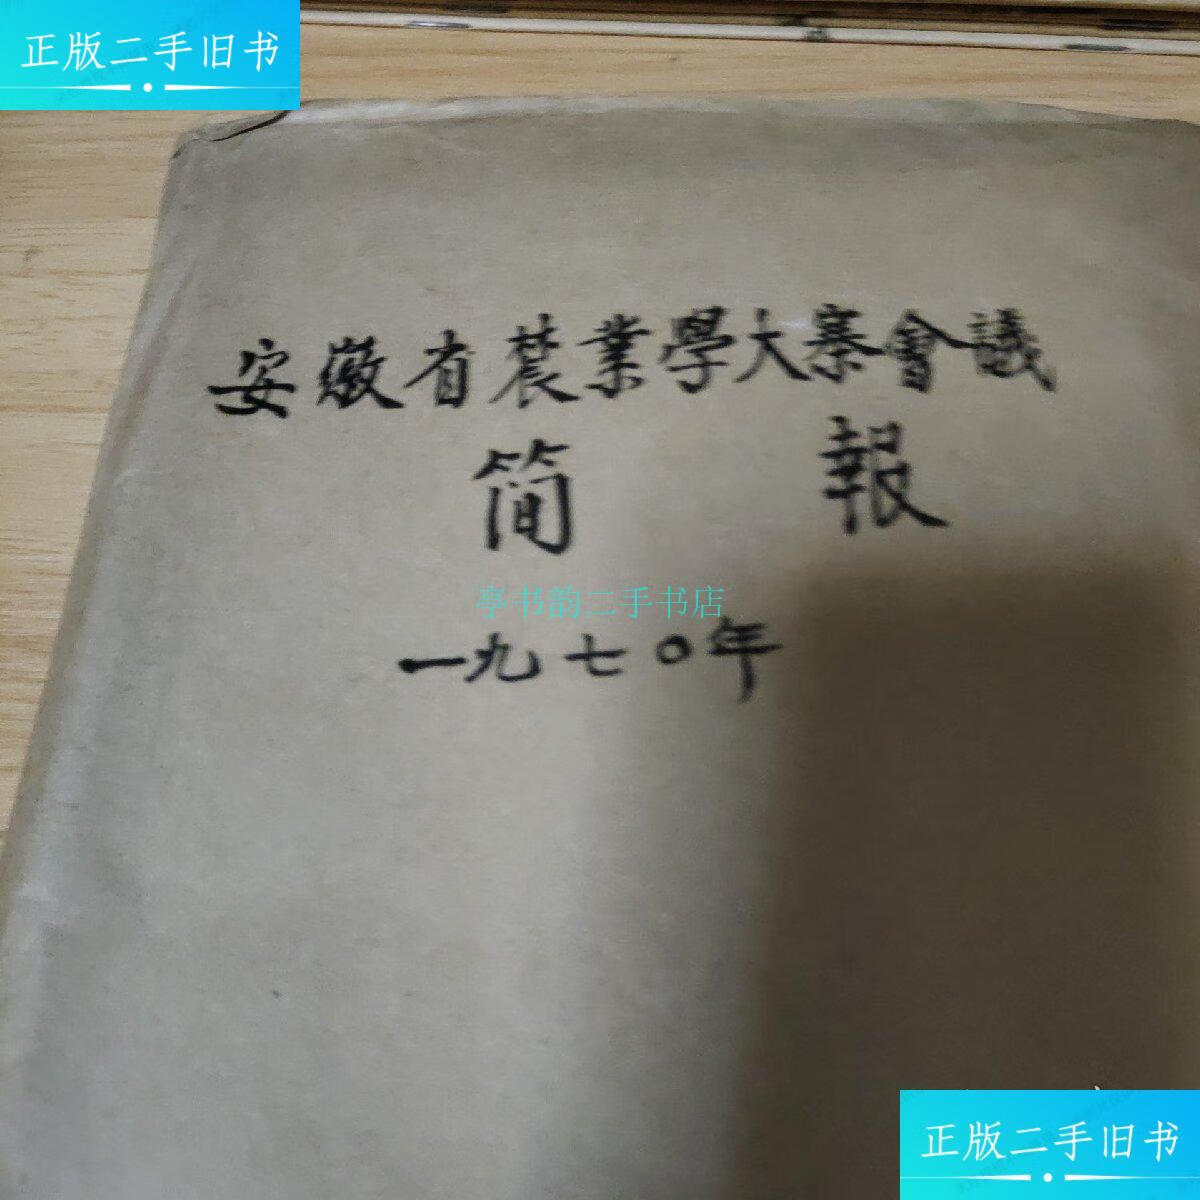 正版二手旧书
安徽省農業學大寨會議
简 報
亭书韵二手书店
一九七〇年
正版二手旧书